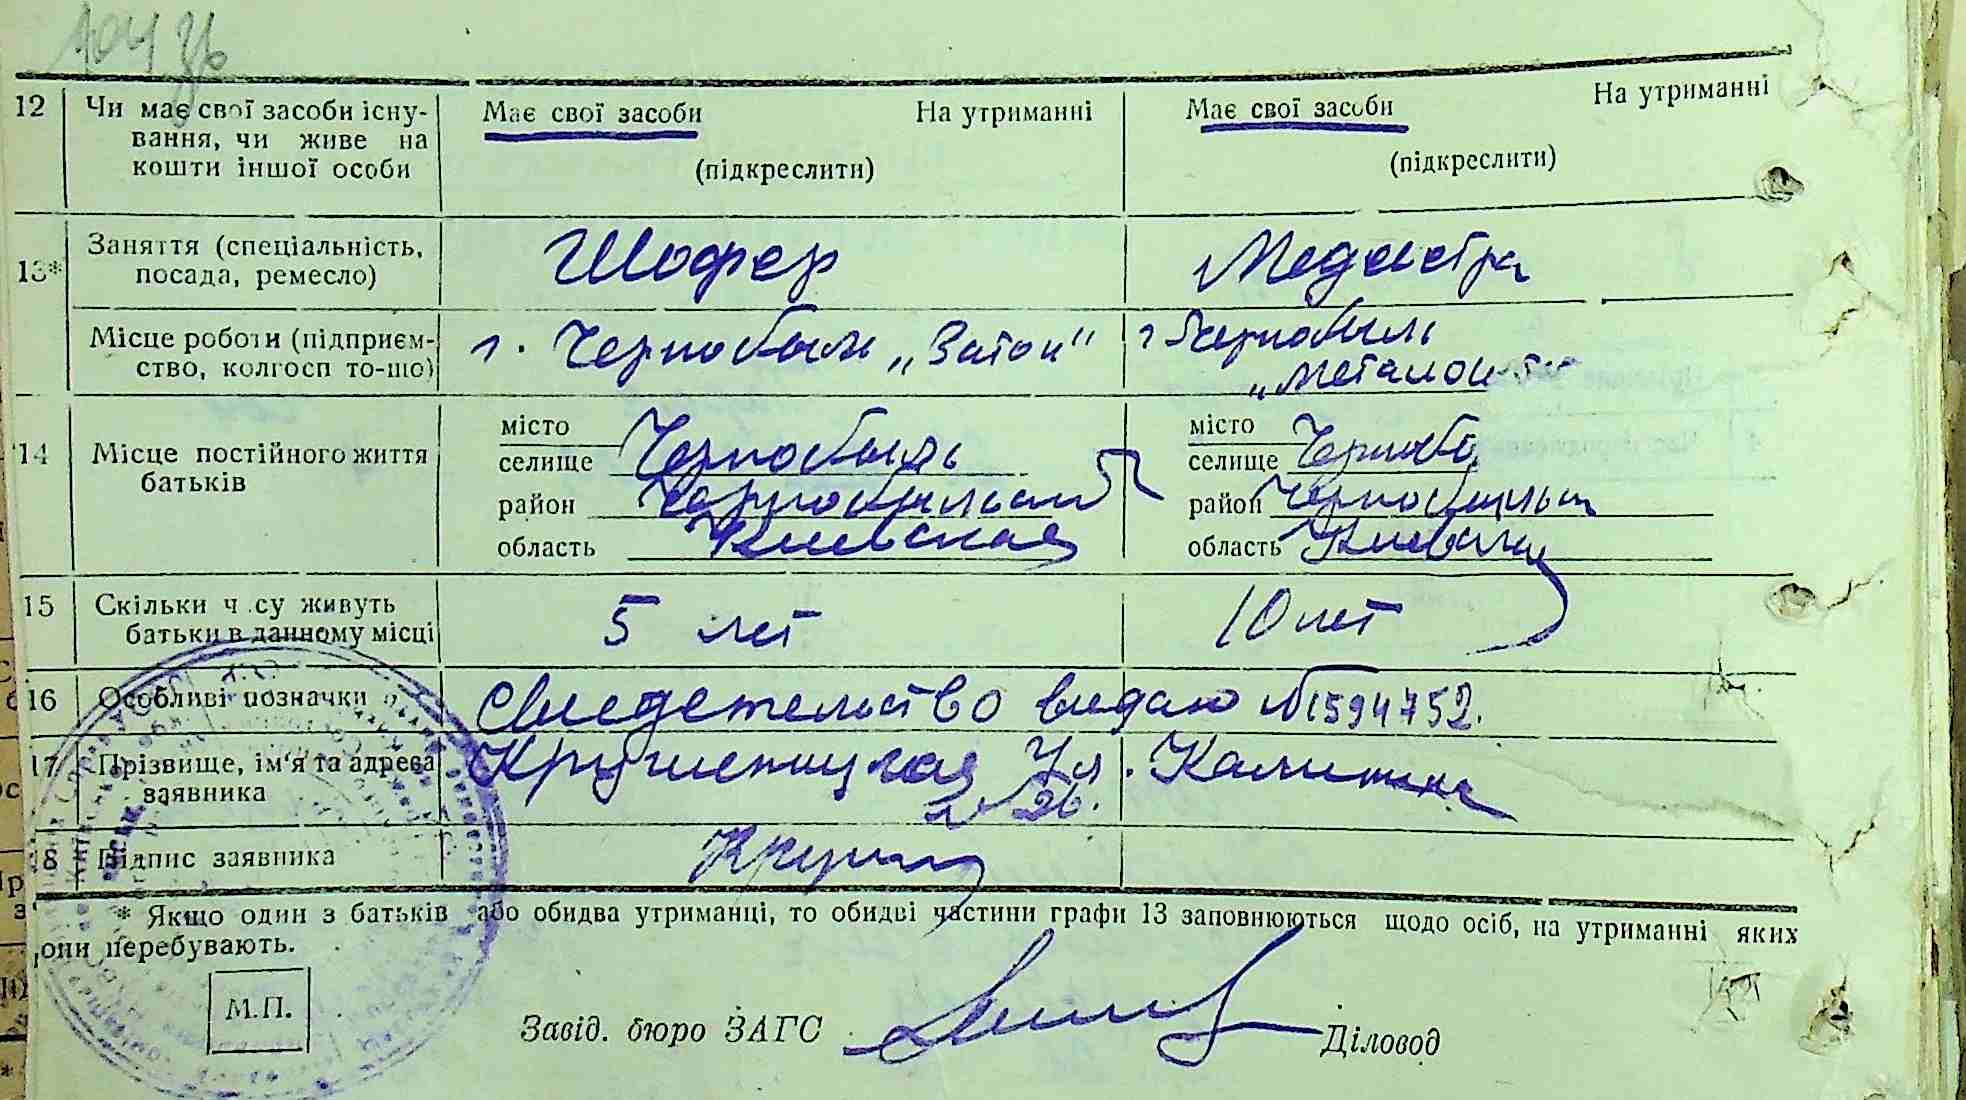 12 Чи має свої засоби існу- Має свої засоби На утриманні Має свої засоби На утриманні
вання, чи живе на
кошти іншої особи (підкреслити) (підкреслити)
13* Заняття (спеціальність, Шофер Медсестра
посада, ремесло)
Місце роботи (підприєм- г. Чернобыль „Затон" г Чернобыль
ство, колгосп то-що)
14 Місце постійного життя батьків
місто місто
селище Чернобыль селище
район район
область Киевская область
15 Скільки ч су живуть 5 лет 10 лет
батьки в данному місці
16 Особливі позначки Свидетельство видано №1594752.
17 Прізвище, ім'я та адреса Ул. Калинина
заявника №26.
18 Підпис заявника
* Якщо один з батьків або обидва утриманці, то обидві частини графи 13 заповнюються щодо осіб, на утриманні яких
они перебувають.
М.П.
Завід. бюро ЗАГС Діловод